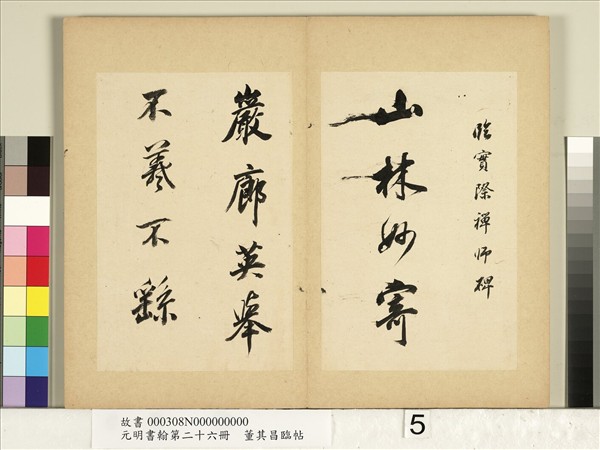 臨實際禪師碑
山林妙寄
巖廊英舉
不羲不繇
故書 000308N000000000
元明書翰第二十六冊 董其昌臨帖
5